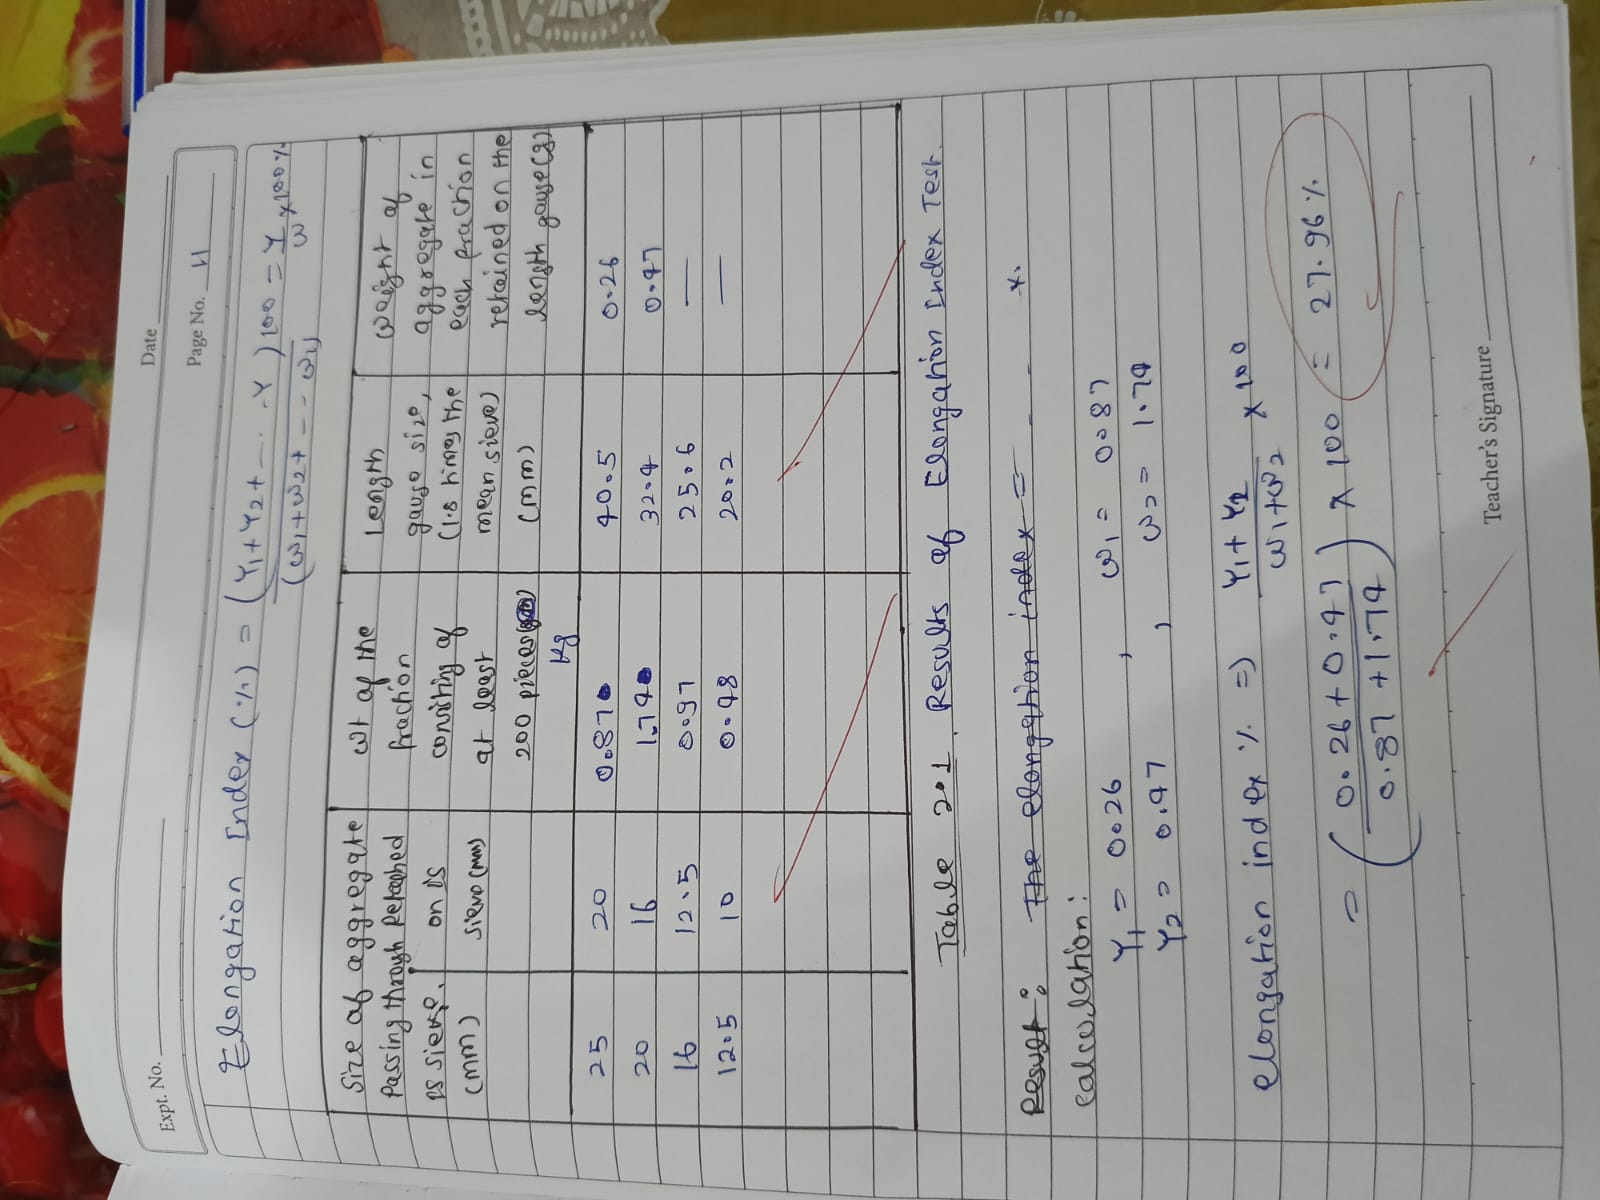 Expt. No.
Date
Page No. 11
Elongation Index (%) = (Y1+Y2+--..-Y)100 = Y x100%
(w1+w2+---w1) w
Size of aggregate
Passing through Retained
IS sieve. on IS
(mm) sieve (mm)
wt of the
fraction
consiting of
at least
200 pieces
Kg
Length
gauge size,
(1.8 times the
mean sieve)
(mm)
Weight of
aggregate in
each fraction
retained on the
length gauge (g)
25 20 0.87 40.5 0.26
20 16 1.74 32.4 0.47
16 12.5 0.97 25.6 —
12.5 10 0.48 20.2 —
Table 2.1. Results of Elongation Index Test.
Result: The elongation index = - - %.
Calculation:
Y1 = 0.26 , w1 = 0.87
Y2 = 0.47 , w2 = 1.74
elongation index % => Y1+Y2 x 100
w1+w2
= (0.26+0.47) x 100 = 27.96%
0.87+1.74
Teacher's Signature